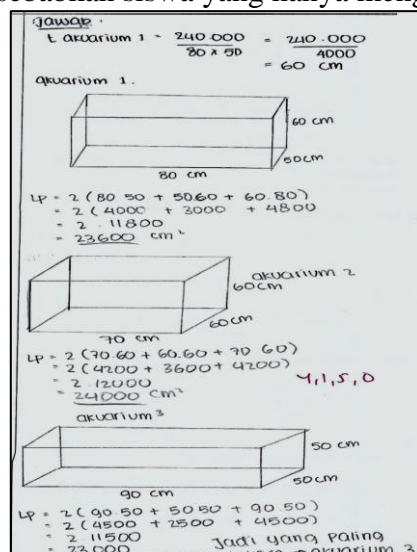 Jawab.
t akuarium 1 = 240.000 / 80 x 50 = 240.000 / 4000
= 60 cm
akuarium 1.
60 cm
50cm
80 cm
LP = 2 (80 50 + 50.60 + 60.80)
= 2 (4000 + 3000 + 4800
= 2 . 11800
= 23600 cm²
akuarium 2
60cm
60cm
70 cm
LP = 2 (70.60 + 60.60 + 70 60)
= 2 (4200 + 3600 + 4200)
= 2 . 12000
= 24000 cm²
4,1,5,0
akuarium 3
50 cm
50cm
90 cm
LP = 2 (90.50 + 50 50 + 90.50)
= 2 (4500 + 2500 + 4500)
= 2 11500
= 23.000
Jadi yang paling
akuarium 3